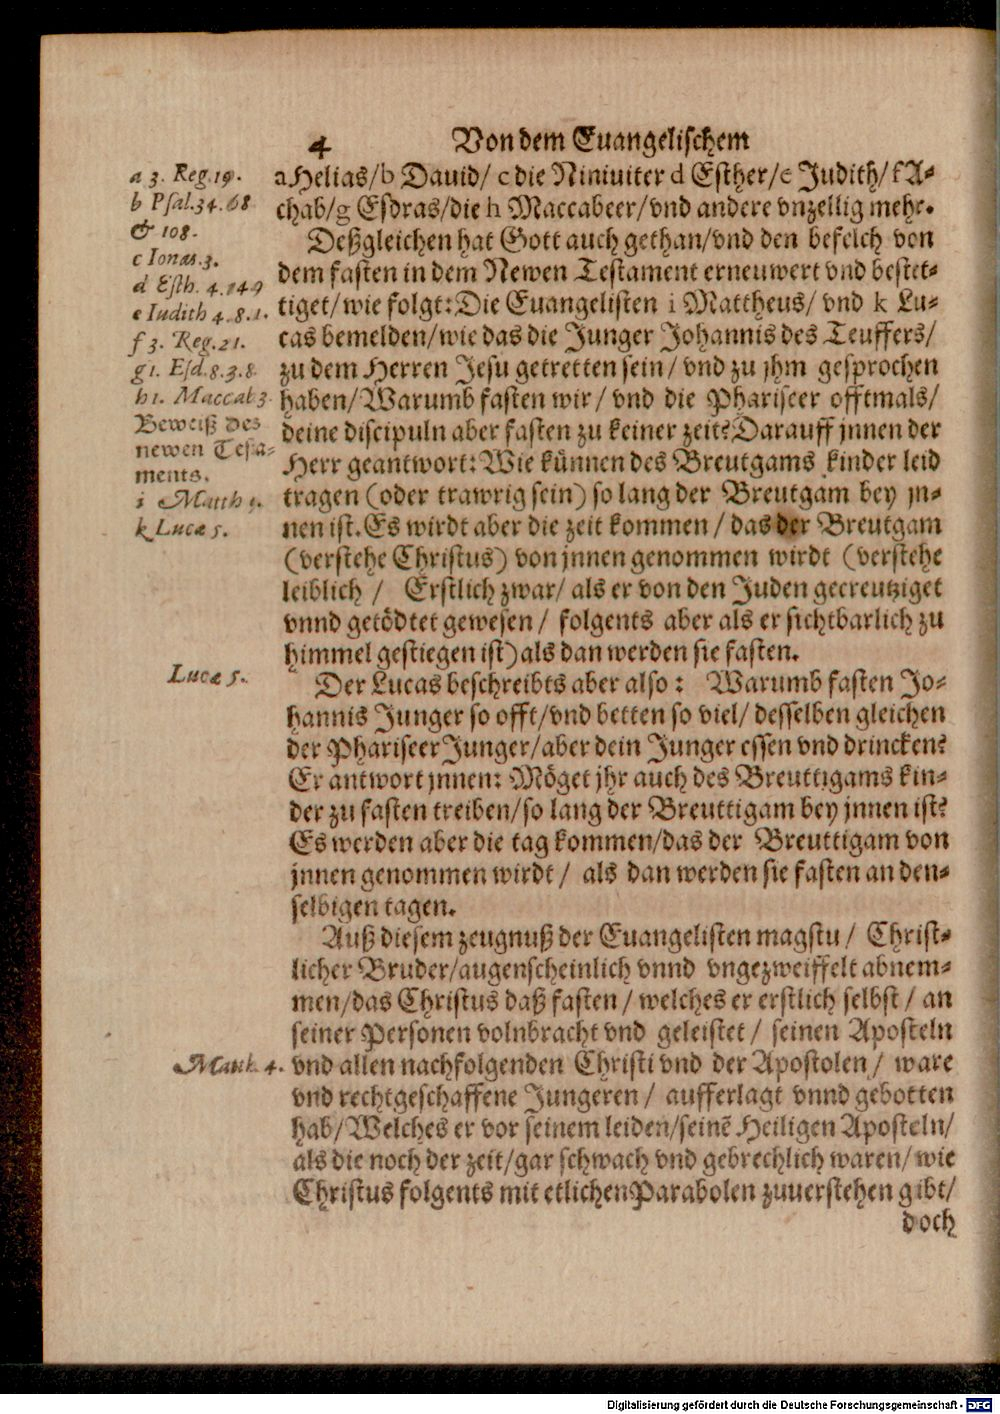 4 Von dem Euangelischem
a Helias/ b Dauid/ c die Niniuiter d Esther/ e Judith/ f A-
chab/ g Esdras/ die h Maccabeer/ vnd andere vnzellig mehr.
Deßgleichen hat Gott auch gethan/ vnd den befelch von
dem fasten in dem Newen Testament erneuwert vnd bestet-
tiget/ wie folgt: Die Euangelisten i Mattheus/ vnd k Lu-
cas bemelden/ wie das die Junger Johannis des Teuffers/
zu dem Herren Jesu getretten sein/ vnd zu jhm gesprochen
haben/ Warumb fasten wir/ vnd die Phariseer offtmals/
deine discipuln aber fasten zu keiner zeit? Darauff jnnen der
Herr geantwort: Wie künnen des Breutgams kinder leid
tragen (oder trawrig sein) so lang der Breutgam bey jn-
nen ist. Es wirdt aber die zeit kommen/ das der Breutgam
(verstehe Christus) von jnnen genommen wirdt (verstehe
leiblich/ Erstlich zwar/ als er von den Juden gecreutziget
vnnd getödtet gewesen/ folgents aber als er sichtbarlich zu
himmel gestiegen ist) als dan werden sie fasten.
Der Lucas beschreibts aber also: Warumb fasten Jo-
hannis Junger so offt/ vnd betten so viel/ desselben gleichen
der Phariseer Junger/ aber dein Junger essen vnd drincken?
Er antwort jnnen: Möget jhr auch des Breuttigams kin-
der zu fasten treiben/ so lang der Breuttigam bey jnnen ist?
Es werden aber die tag kommen/ das der Breuttigam von
jnnen genommen wirdt/ als dan werden sie fasten an den-
selbigen tagen.
Auß diesem zeugnuß der Euangelisten magstu/ Christ-
licher Bruder/ augenscheinlich vnnd vngezweiffelt abnem-
men/ das Christus daß fasten/ welches er erstlich selbst/ an
seiner Personen volnbracht vnd geleistet/ seinen Aposteln
vnd allen nachfolgenden Christi vnd der Apostolen/ ware
vnd rechtgeschaffene Jungeren/ aufferlagt vnnd gebotten
hab/ Welches er vor seinem leiden/ seinē Heiligen Aposteln/
als die noch der zeit/ gar schwach vnd gebrechlich waren/ wie
Christus folgents mit etlichen Parabolen zuuerstehen gibt/
doch
a 3. Reg. 19.
b Psal. 34. 68
& 108.
c Ionas. 3.
d Esth. 4. 14 9
e Iudith 4. 8. 1.
f 3. Reg. 21.
g 1. Esd. 8. 3. 8.
h 1. Maccab 3
Beweiß des
newen Tesa-
ments.
i Matth 9.
k Lucæ 5.
Lucæ 5.
Matth. 4.
Digitalisierung gefördert durch die Deutsche Forschungsgemeinschaft - DFG